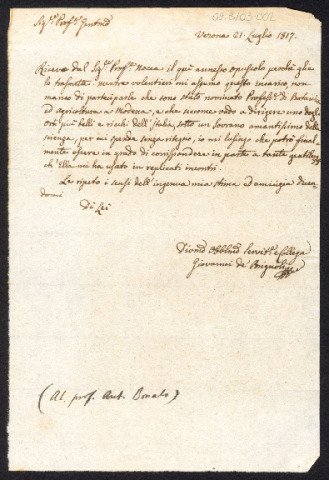 Sig.e Prof.e
Verona 21. Luglio 1817.
Ricevo dal Sig.e Prof.e Nocca il qui annesso opuscolo perchè glie
lo trasmetta. Mentre volentieri mi assumo questo incarico, non
manco di participarle che sono stato nominato Professore di Botanica
ed agricoltura a Modena, e che siccome vado a dirigere uno degli
orti più belli e ricchi dell'Italia, sotto un Sovrano amantissimo della
scienza, per cui spende senza risparmio, io mi lusingo che potrò final
mente essere in grado di corrispondere in parte a tante gentilezze
ch'Ella mi ha usato in replicati incontri.
Le ripeto i sensi dell'ingenua mia stima ed amicizia dicen
domi
Di Lei
Servit.e e Collega
Giovanni de' Brignoli
(Al prof. Ant. Bonato)